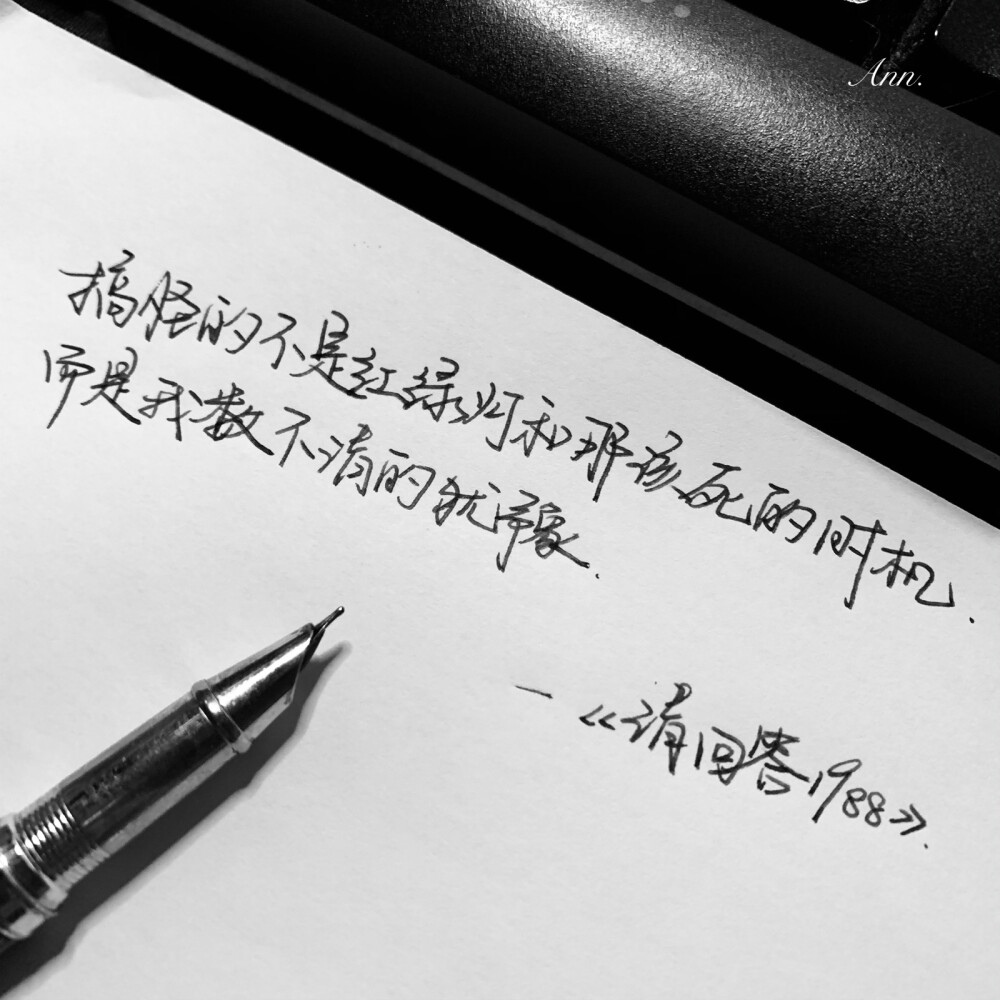 Ann.
搞怪的不是红绿灯和那该死的时机.
而是我数不清的犹豫.
—《请回答1988》.